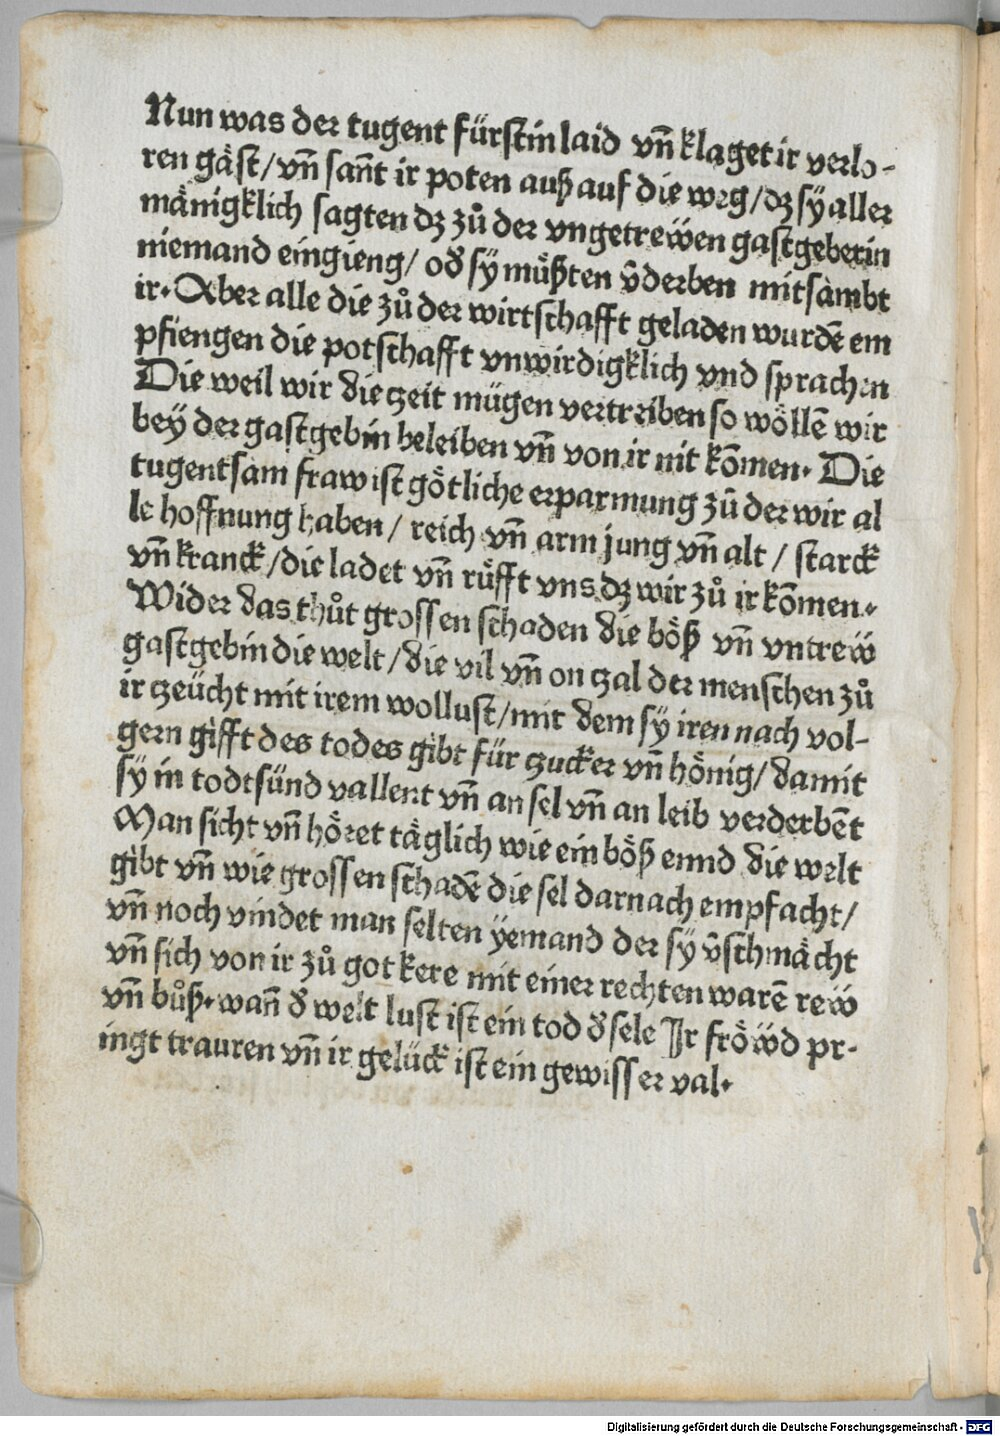 Nun was der tugent fürstin laid vn̄ klaget ir verlo-
ren gåst/vn̄ san̄t ir poten auß auf die weg/dz sÿ aller
månigklich sagten dz zů der vngetrewen gastgeberin
niemand eingieng/ oď sÿ müßten v̄derben mitsambt
ir. Aber alle die zů der wirtschafft geladen wurdē em
pfiengen die potschafft vnwirdigklich vnd sprachen
Die weil wir die zeit mügen vertreiben so wöllē wir
beÿ der gastgebin beleiben vn̄ von ir nit kōmen. Die
tugentsam fraw ist götliche erparmung zů der wir al
le hoffnung haben/ reich vn̄ arm jung vn̄ alt/ starck
vn̄ kranck/die ladet vn̄ rüfft vns dz wir zů ir kōmen.
Wider das thůt grossen schaden die böß vn̄ vntreẅ
gastgebin die welt/die vil vn̄ on zal der menschen zů
ir zeücht mit irem wollust/mit dem sÿ iren nach vol-
gern gifft des todes gibt für zucker vn̄ hönig/damit
sÿ in todtsünd vallent vn̄ an sel vn̄ an leib verderbēt
Man sicht vn̄ höret täglich wie ein böß ennd die welt
gibt vn̄ wie grossen schadē die sel darnach empfacht/
vn̄ noch vindet man selten ÿemand der sÿ v̄schmächt
vn̄ sich von ir zů got kere mit einer rechten warē reẅ
vn̄ bůß. wan̄ ď welt lust ist ein tod ď sele Ir fröẅd pr-
ingt trauren vn̄ ir gelück ist ein gewisser val.
Digitalisierung gefördert durch die Deutsche Forschungsgemeinschaft - DFG